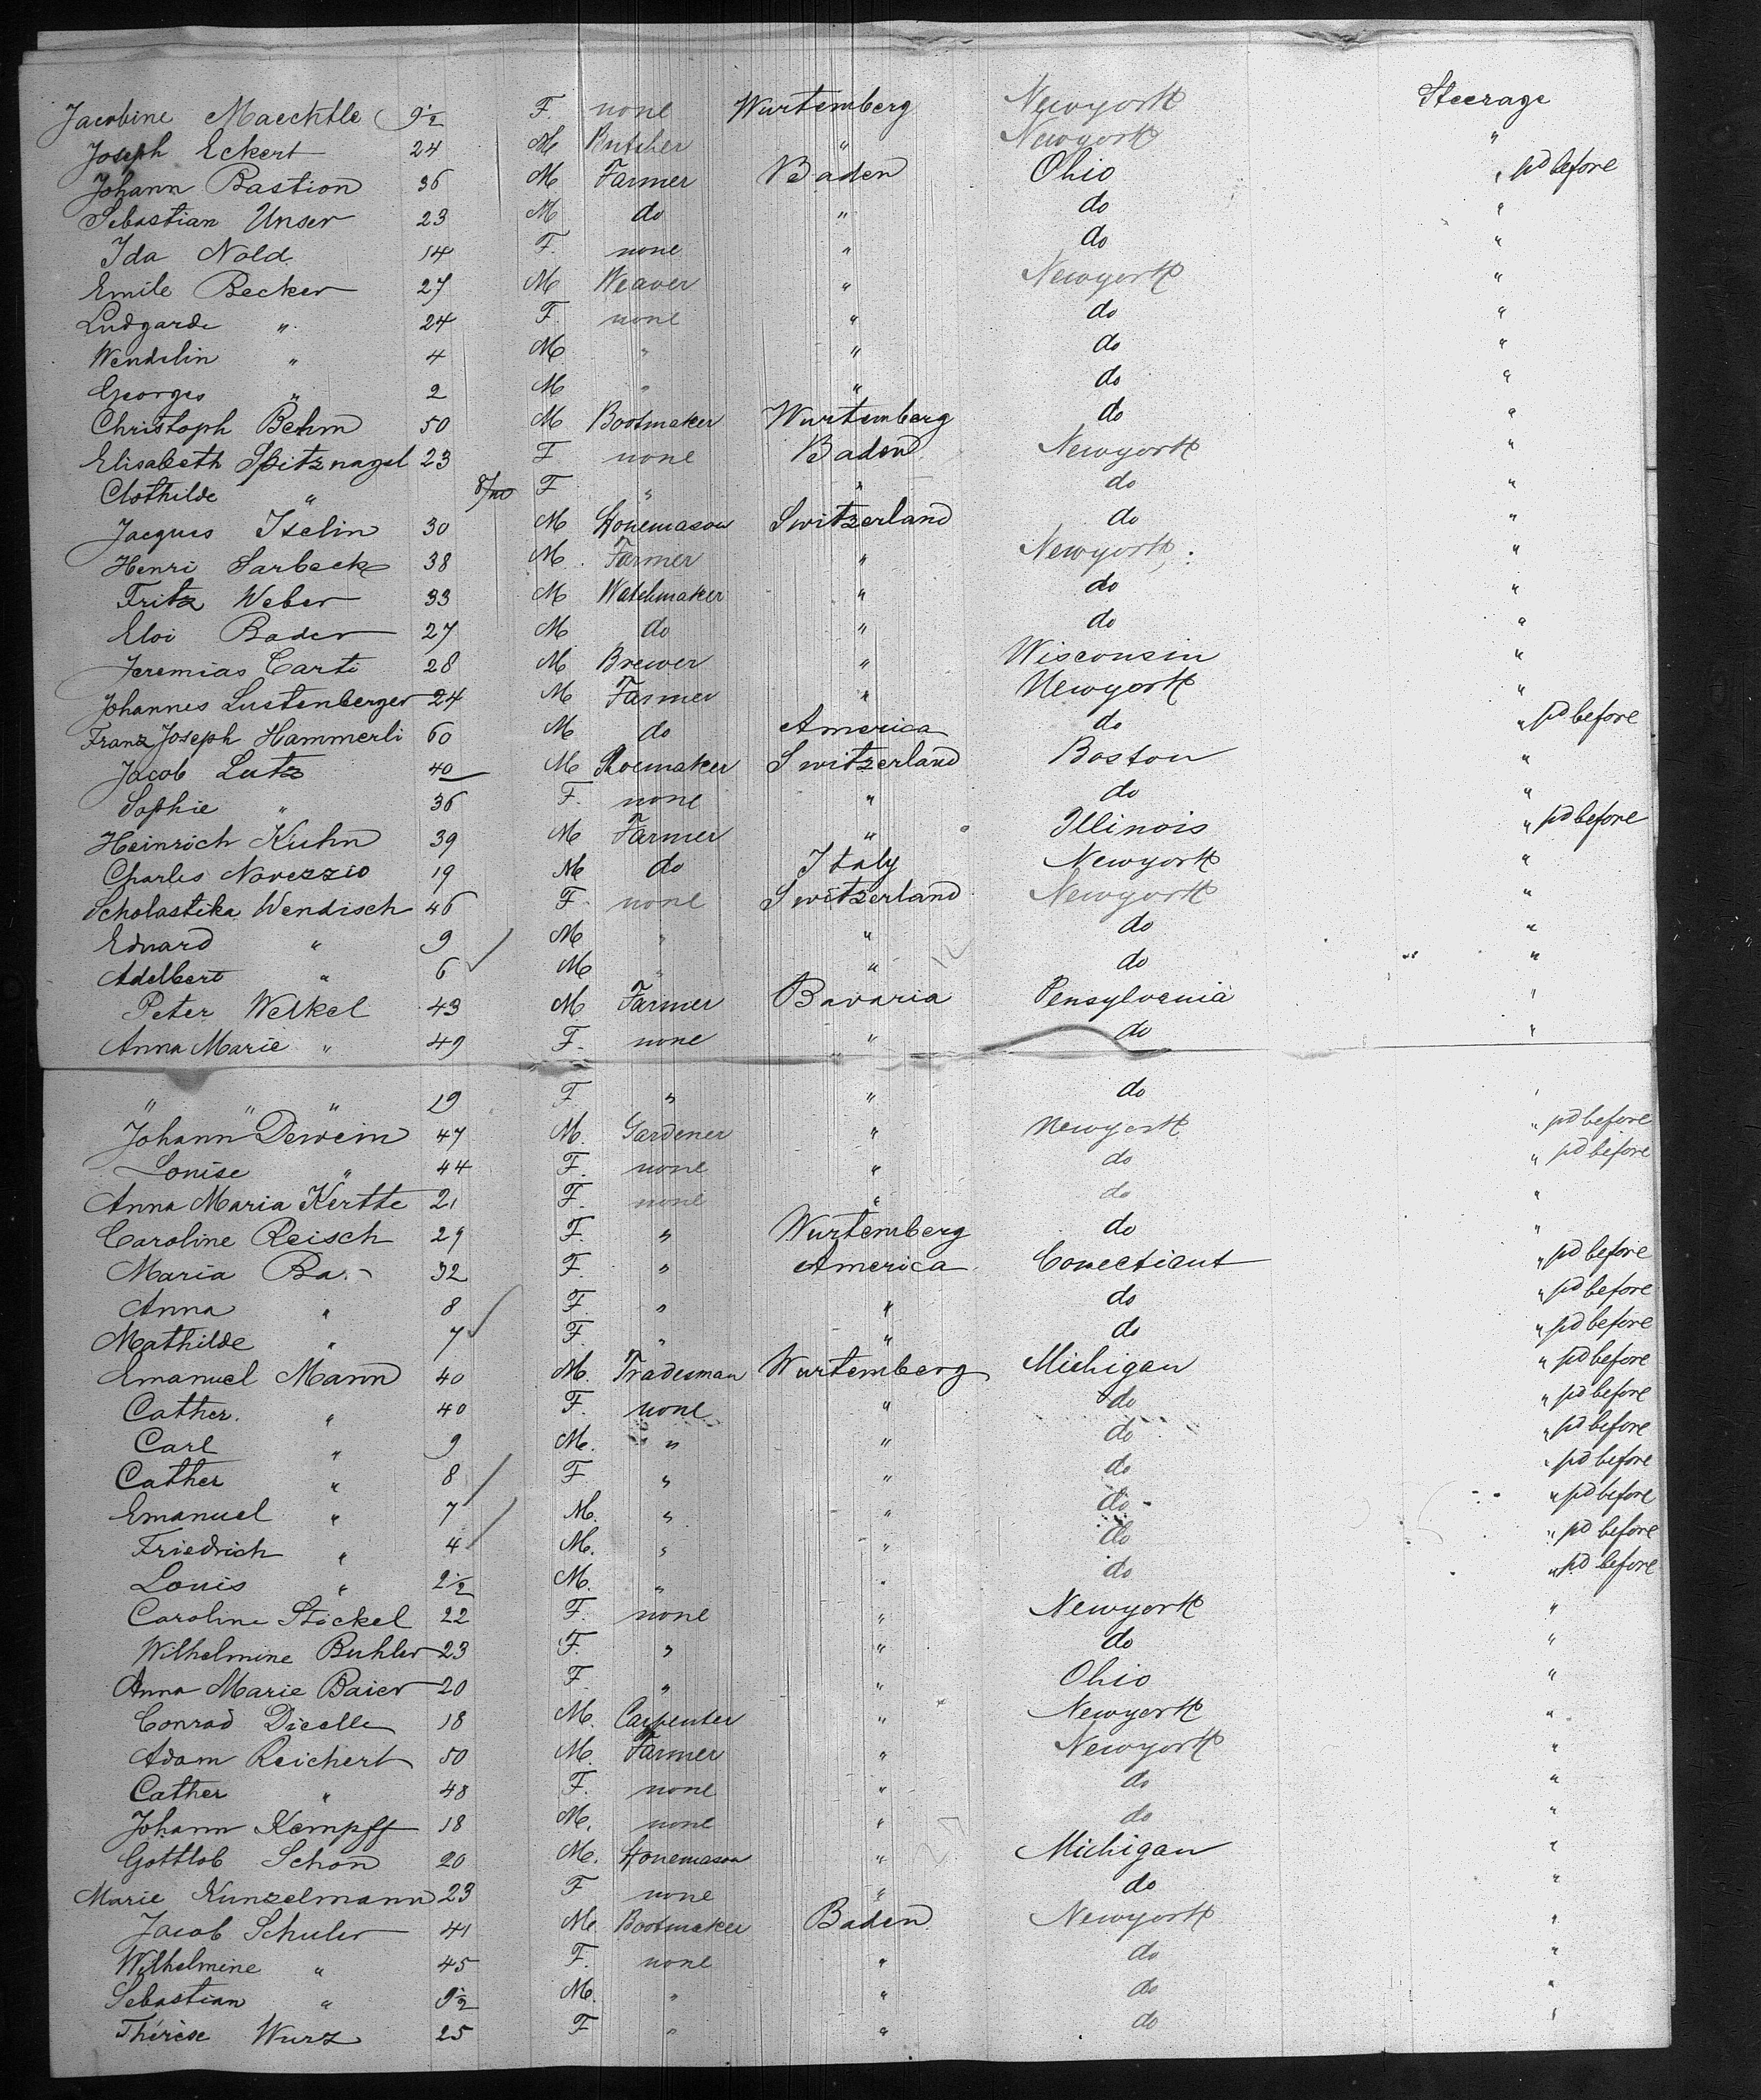 Jacobine Maechtle 9½ F. none Wurtemberg Newyork Steerage
Joseph Eckert 24 M Butcher " Newyork "
Johann Bastion 36 M Farmer Baden Ohio " pd before
Sebastian Unser 23 M do " do "
Ida Nold 14 F. none " do "
Emile Becker 27 M Weaver " Newyork "
Ludgarde " 24 F. none " do "
Wendelin " 4 M " " do "
Georges " 2 M " " do "
Christoph Behm 50 M Bootmaker Wurtemberg do "
Elisabeth Spitznagel 23 F none Baden Newyork "
Clothilde " 8/m F " " do "
Jacques Iselin 30 M Stonemason Switzerland do "
Henri Sarbeck 38 M. Farmer " Newyork "
Fritz Weber 33 M Watchmaker " do "
Eloi Bader 27 M do " do "
Jeremias Carti 28 M Brewer " Wisconsin "
Johannes Lustenberger 24 M Farmer " Newyork "
Franz Joseph Hammerli 60 M do America do " pd before
Jacob Lutz 40 M Shoemaker Switzerland Boston "
Sophie " 36 F. none " do "
Heinrich Kuhn 39 M Farmer " Illinois " pd before
Charles Novezzio 19 M do Italy Newyork "
Scholastika Wendisch 46 F. none Switzerland Newyork "
Eduard " 9 M " " do "
Adelbert " 6 M " " do "
Peter Welkel 43 M Farmer Bavaria Pensylvania "
Anna Marie " 49 F. none " do "
" " " 19 F. " " do "
Johann Dewein 47 M. Gardener " Newyork " pd before
Louise " 44 F. none " do " pd before
Anna Maria Kertte 21 F. none " do "
Caroline Reisch 29 F. " Wurtemberg do "
Maria 32 F. " America Conecticut " pd before
Anna " 8 F. " " do " pd before
Mathilde " 7 F. " " do " pd before
Emanuel Mann 40 M. Tradesman Wurtemberg Michigan " pd before
Cather. " 40 F. none " do " pd before
Carl " 9 M. " " do " pd before
Cather " 8 F. " " do " pd before
Emanuel " 7 M. " " do " pd before
Friedrich " 4 M. " " do " pd before
Louis " 2½ M. " " do " pd before
Caroline Stöckel 22 F. none " Newyork "
Wilhelmine Buhler 23 F. " " do "
Anna Marie Baier 20 F. " " Ohio "
Conrad Dicelle 18 M. Carpenter " Newyork "
Adam Reichert 50 M. Farmer " Newyork "
Cather " 48 F. none " do "
Johann Kempff 18 M. none " do "
Gottlob Schon 20 M. Stonemason " Michigan "
Marie Kunzelmann 23 F none " do "
Jacob Schuler 41 M. Bootmaker Baden Newyork "
Wilhelmine " 45 F. none " do "
Sebastian " 9½ M. " " do "
Thérèse Wurz 25 F " " do "